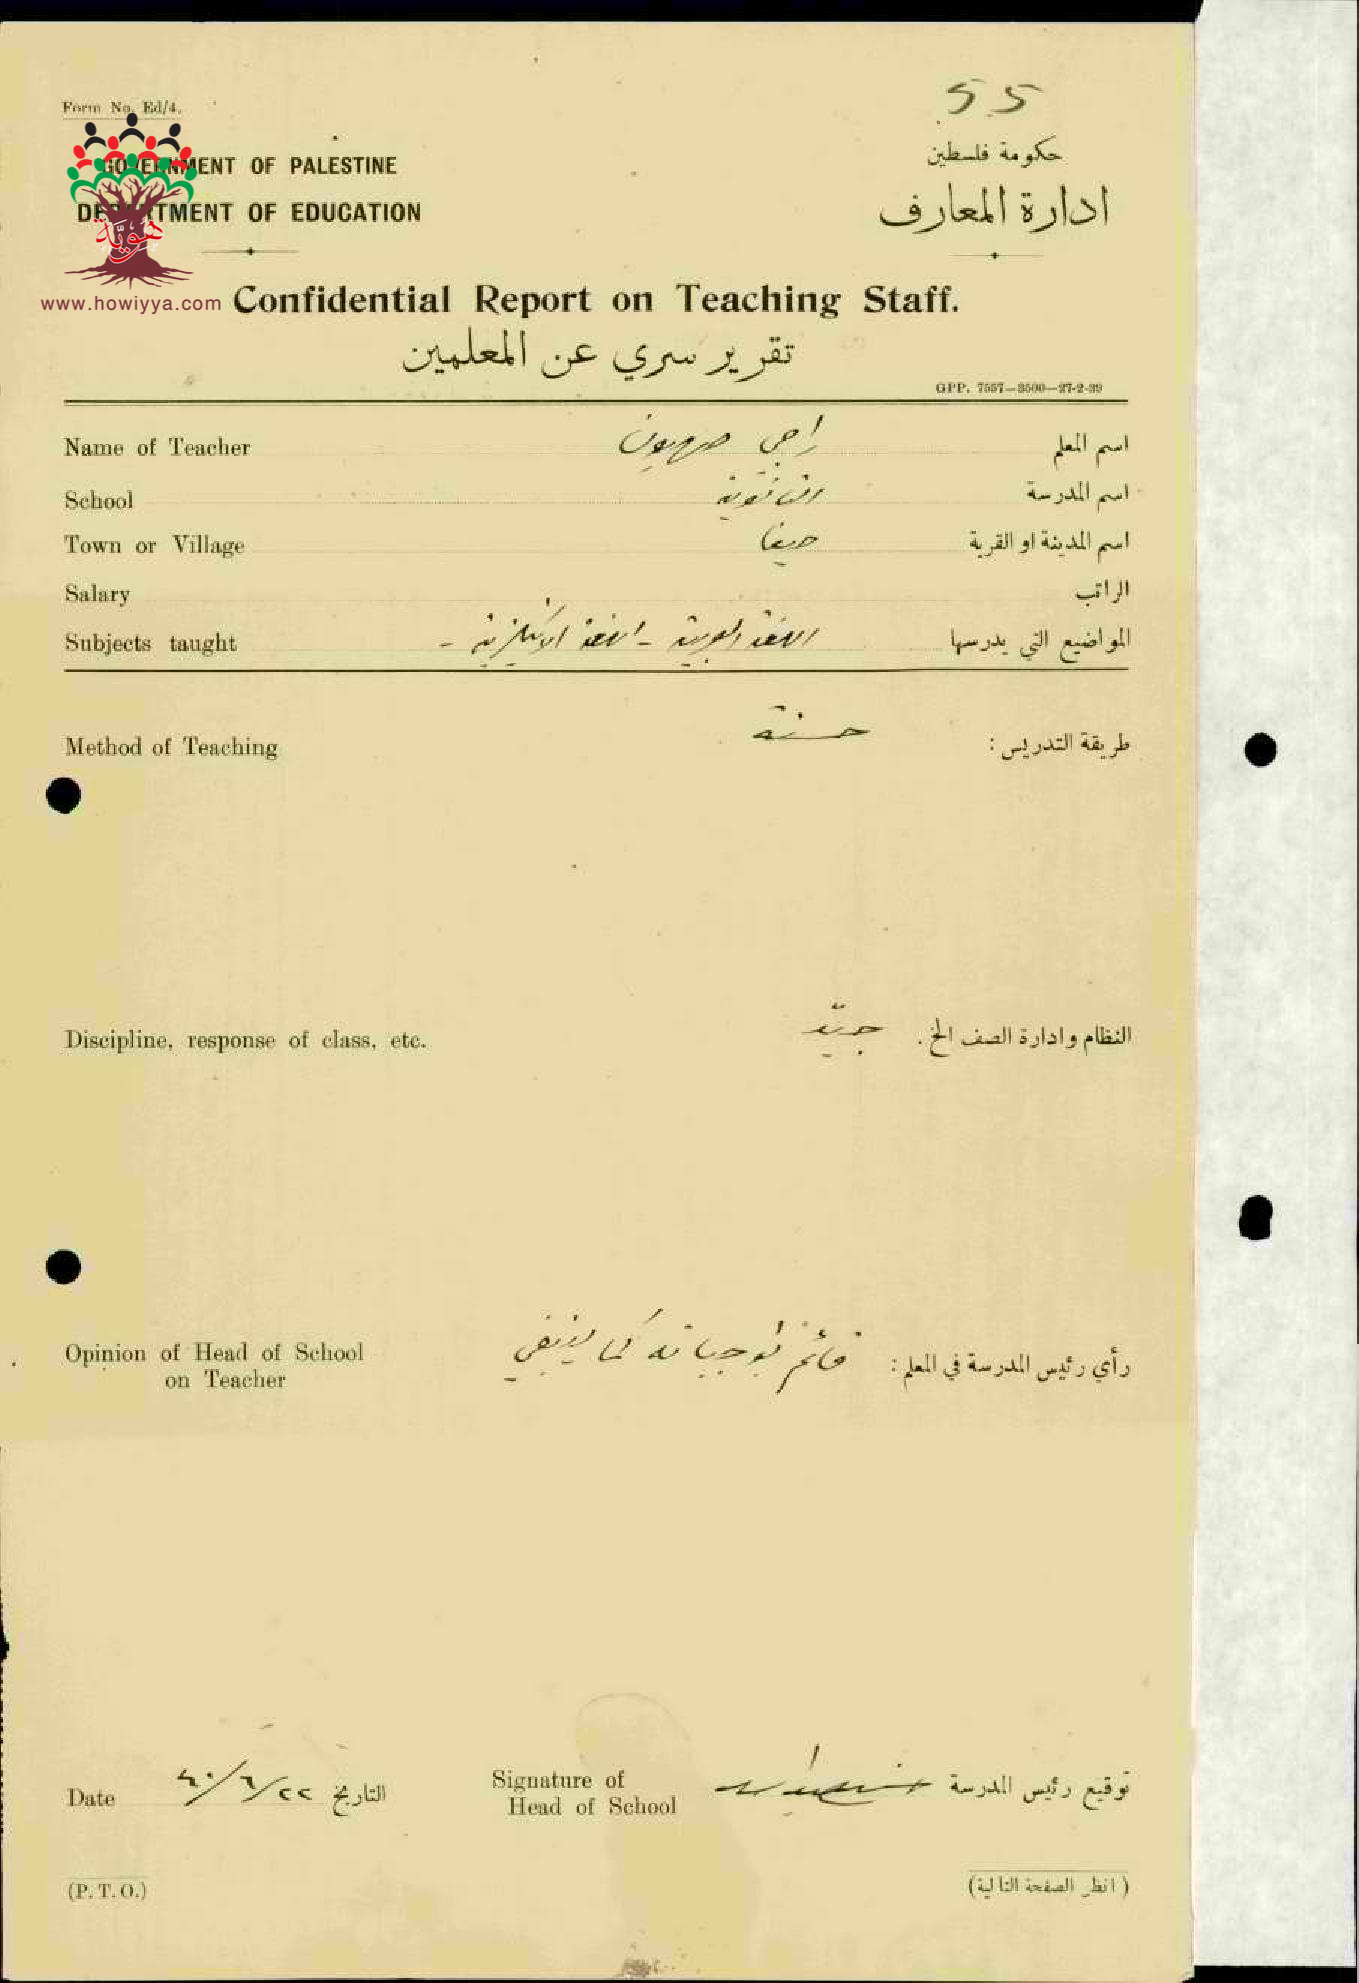 55
Form No. Ed/4.
GOVERNMENT OF PALESTINE
حكومة فلسطين
DEPARTMENT OF EDUCATION
ادارة المعارف
هويّة
www.howiyya.com
Confidential Report on Teaching Staff.
تقرير سري عن المعلمين
GPP. 7557—3500—27-2-39
Name of Teacher راجي صهيون اسم المعلم
School الثانوية اسم المدرسة
Town or Village حيفا اسم المدينة او القرية
Salary الراتب
Subjects taught اللغة العربية - اللغة الانكليزية - المواضيع التي يدرسها
Method of Teaching حسنة طريقة التدريس :
Discipline, response of class, etc. جيّد النظام وادارة الصف الخ .
Opinion of Head of School قائم بواجباته كما ينبغي رأي رئيس المدرسة في المعلم :
on Teacher
Date ٤٠/٦/٢٢ التاريخ Signature of توقيع رئيس المدرسة
Head of School
(P. T. O.) (انظر الصفحة التالية)